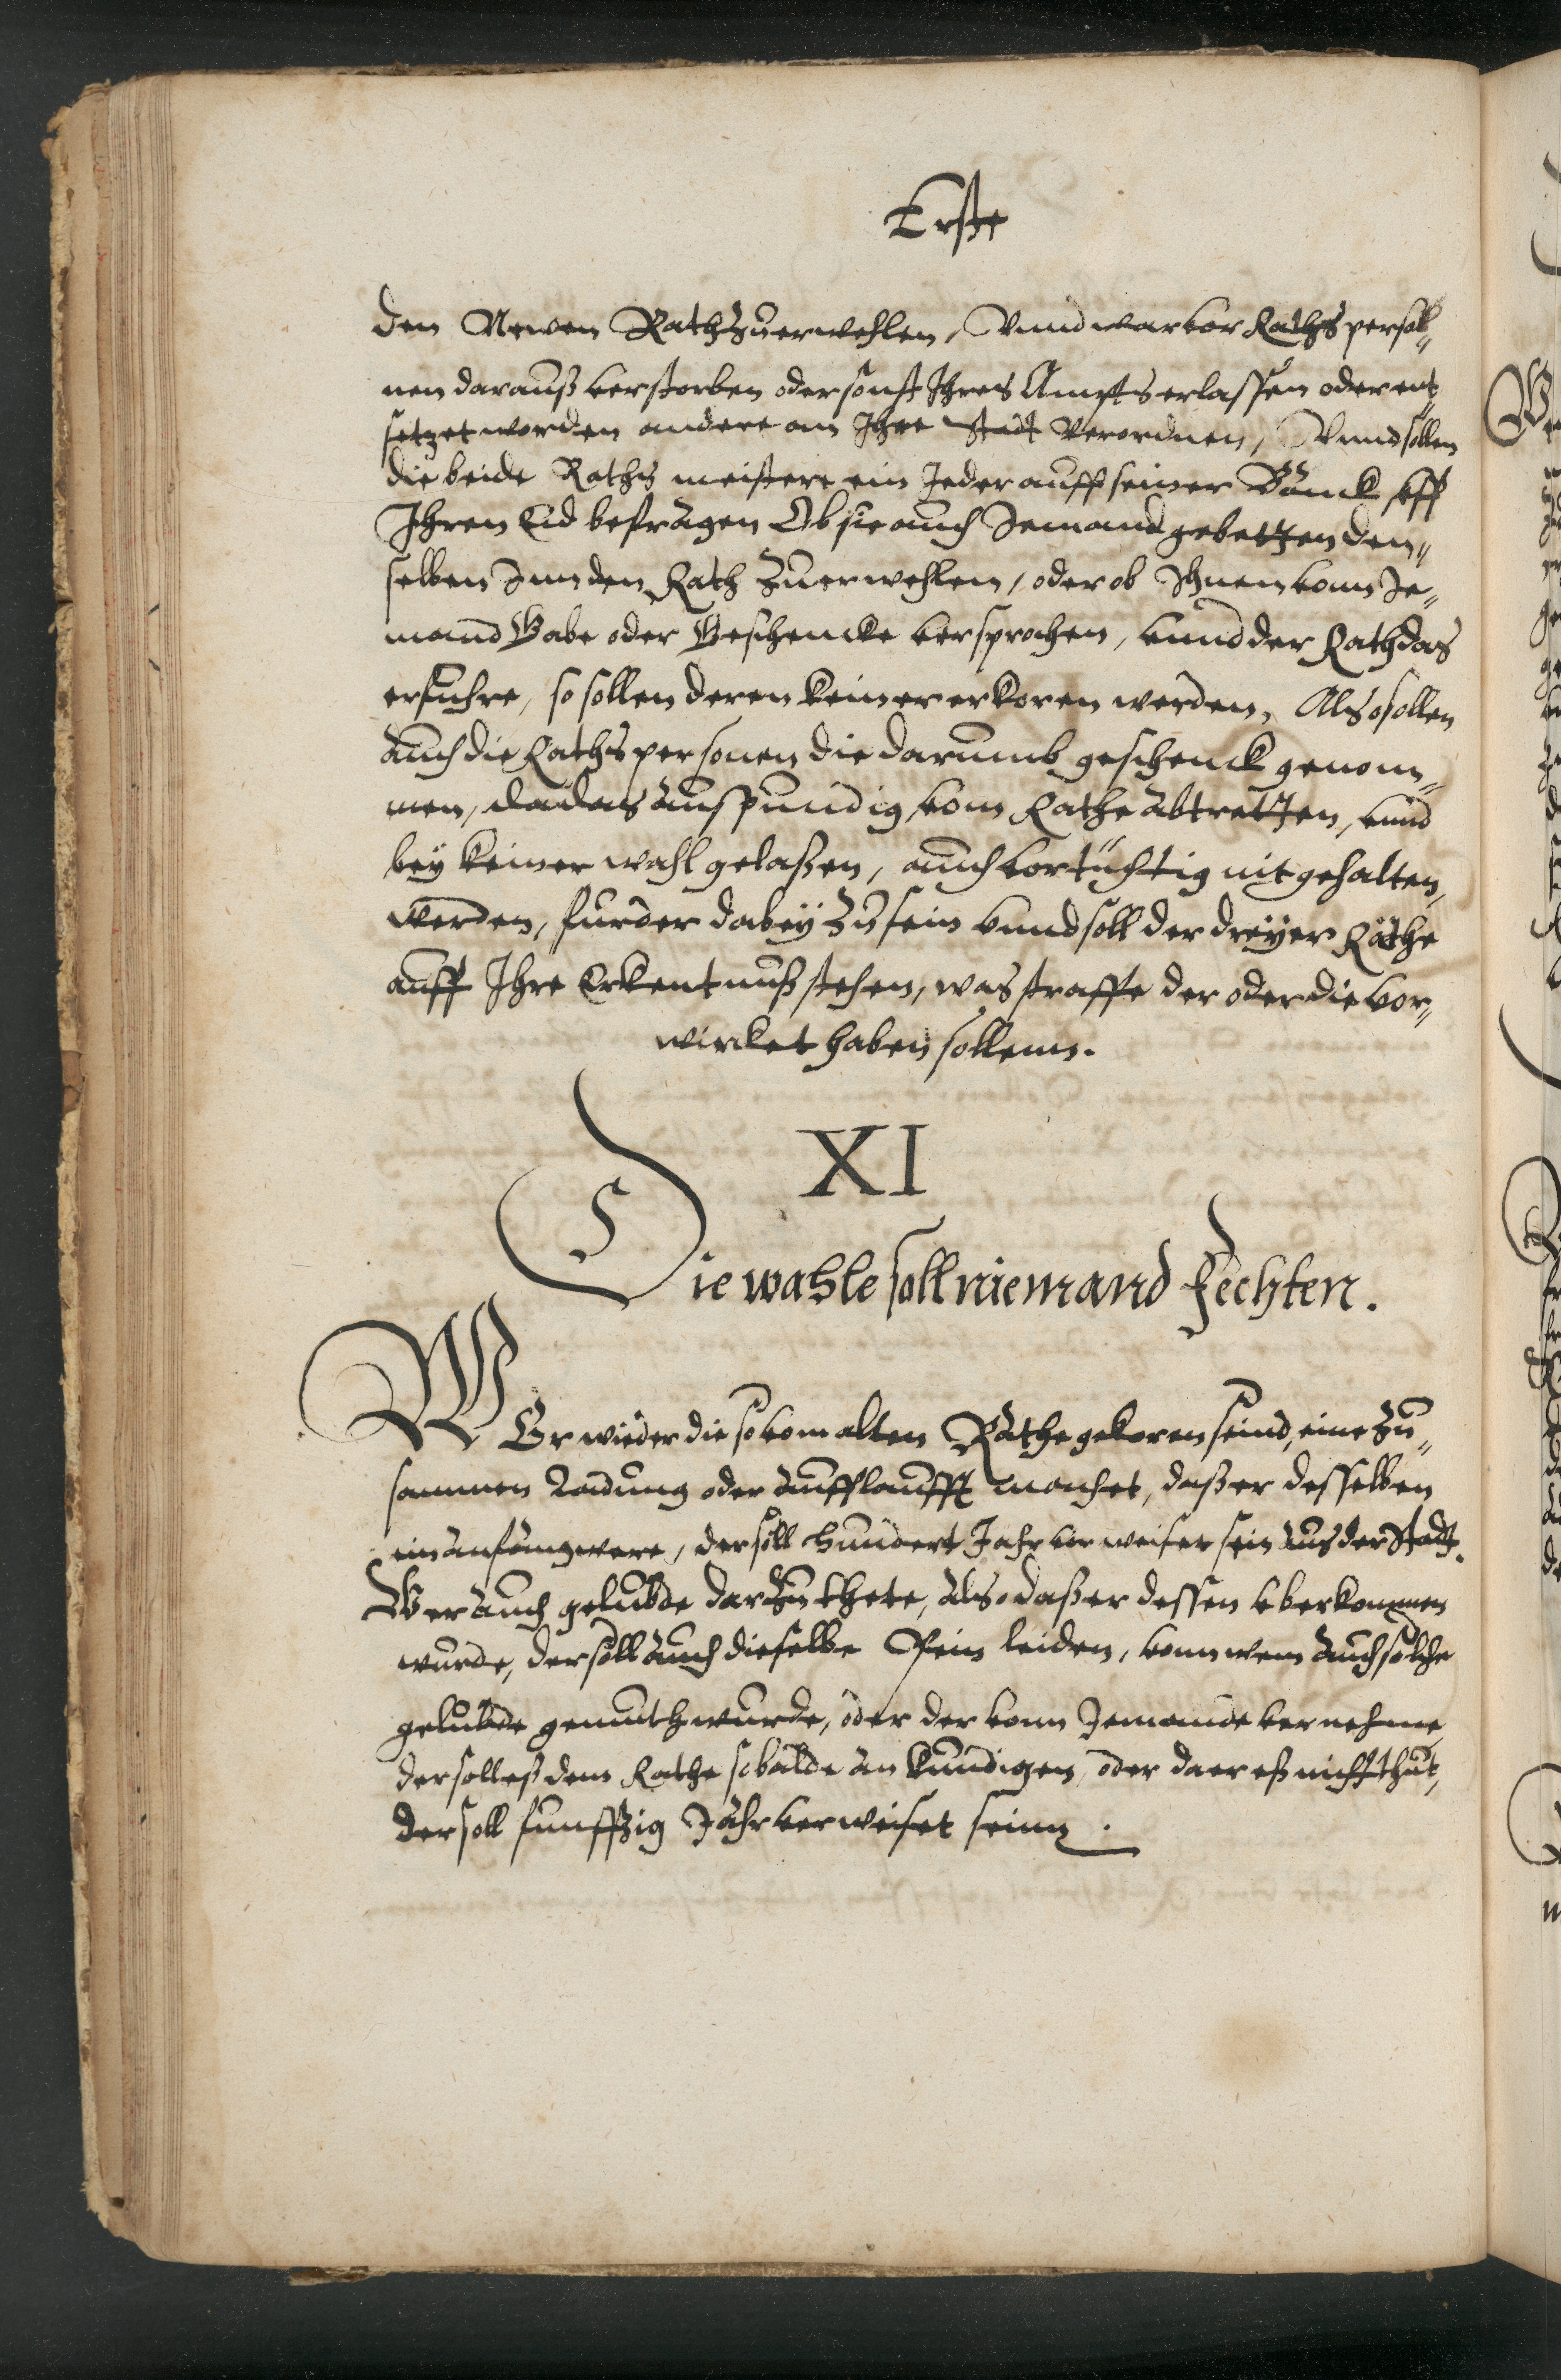 Erste
den Newen Rath zuerwehlen, Vnnd war vor Raths persoh„
nen darauß verstorben oder sonst Ihres Ampts erlassen oder ent„
setzet worden andere an Ihre Stadt Verordnen, Vnnd sollen
die beide Raths meistere ein Jeder auff seiner Banck vff
Ihren Eid befragen Ob sie auch Jemand gebetten den„
selben Inn den Rath zuerwehlen, oder ob Ihnen vonn Je„
mand Gabe oder Geschencke versprochen, vnnd der Rath das
erfuhre, so sollen deren keiner erkoren werden, Also sollen
auch die Raths personen die darumb geschenck genom„
men, vom Rathe abtretten, vnnd
bey keiner wahl gelaßen, auch vortüchtig nit gehalten,
werden, furder dabey zu sein vnnd soll der dreyer Räthe
auff Ihre Erkentnuß stehen, was straffe der oder die vor„
wircket haben sollenn.
XI
Die wahle soll niemand Fechten.
WEr wieder die so vom alten Rathe gekoren seind, eine zu„
sammen Ladung oder aufflaufft machet, daß er desselben
ein anfang were, der soll hundert Jahr vorweiset sein aus der Stadt.
Wer auch gelubde darzu thete, also daß er dessen vberkommen
wurde, der soll auch dieselbe Pein leiden, vonn wem auch solche
gelubde gemuth wurde, oder der vonn Jemande vernehme
der soll eß dem Rathe sobalde an kundigen, oder da er eß nicht thut,
der soll funffzig Jahr verweiset seinn.